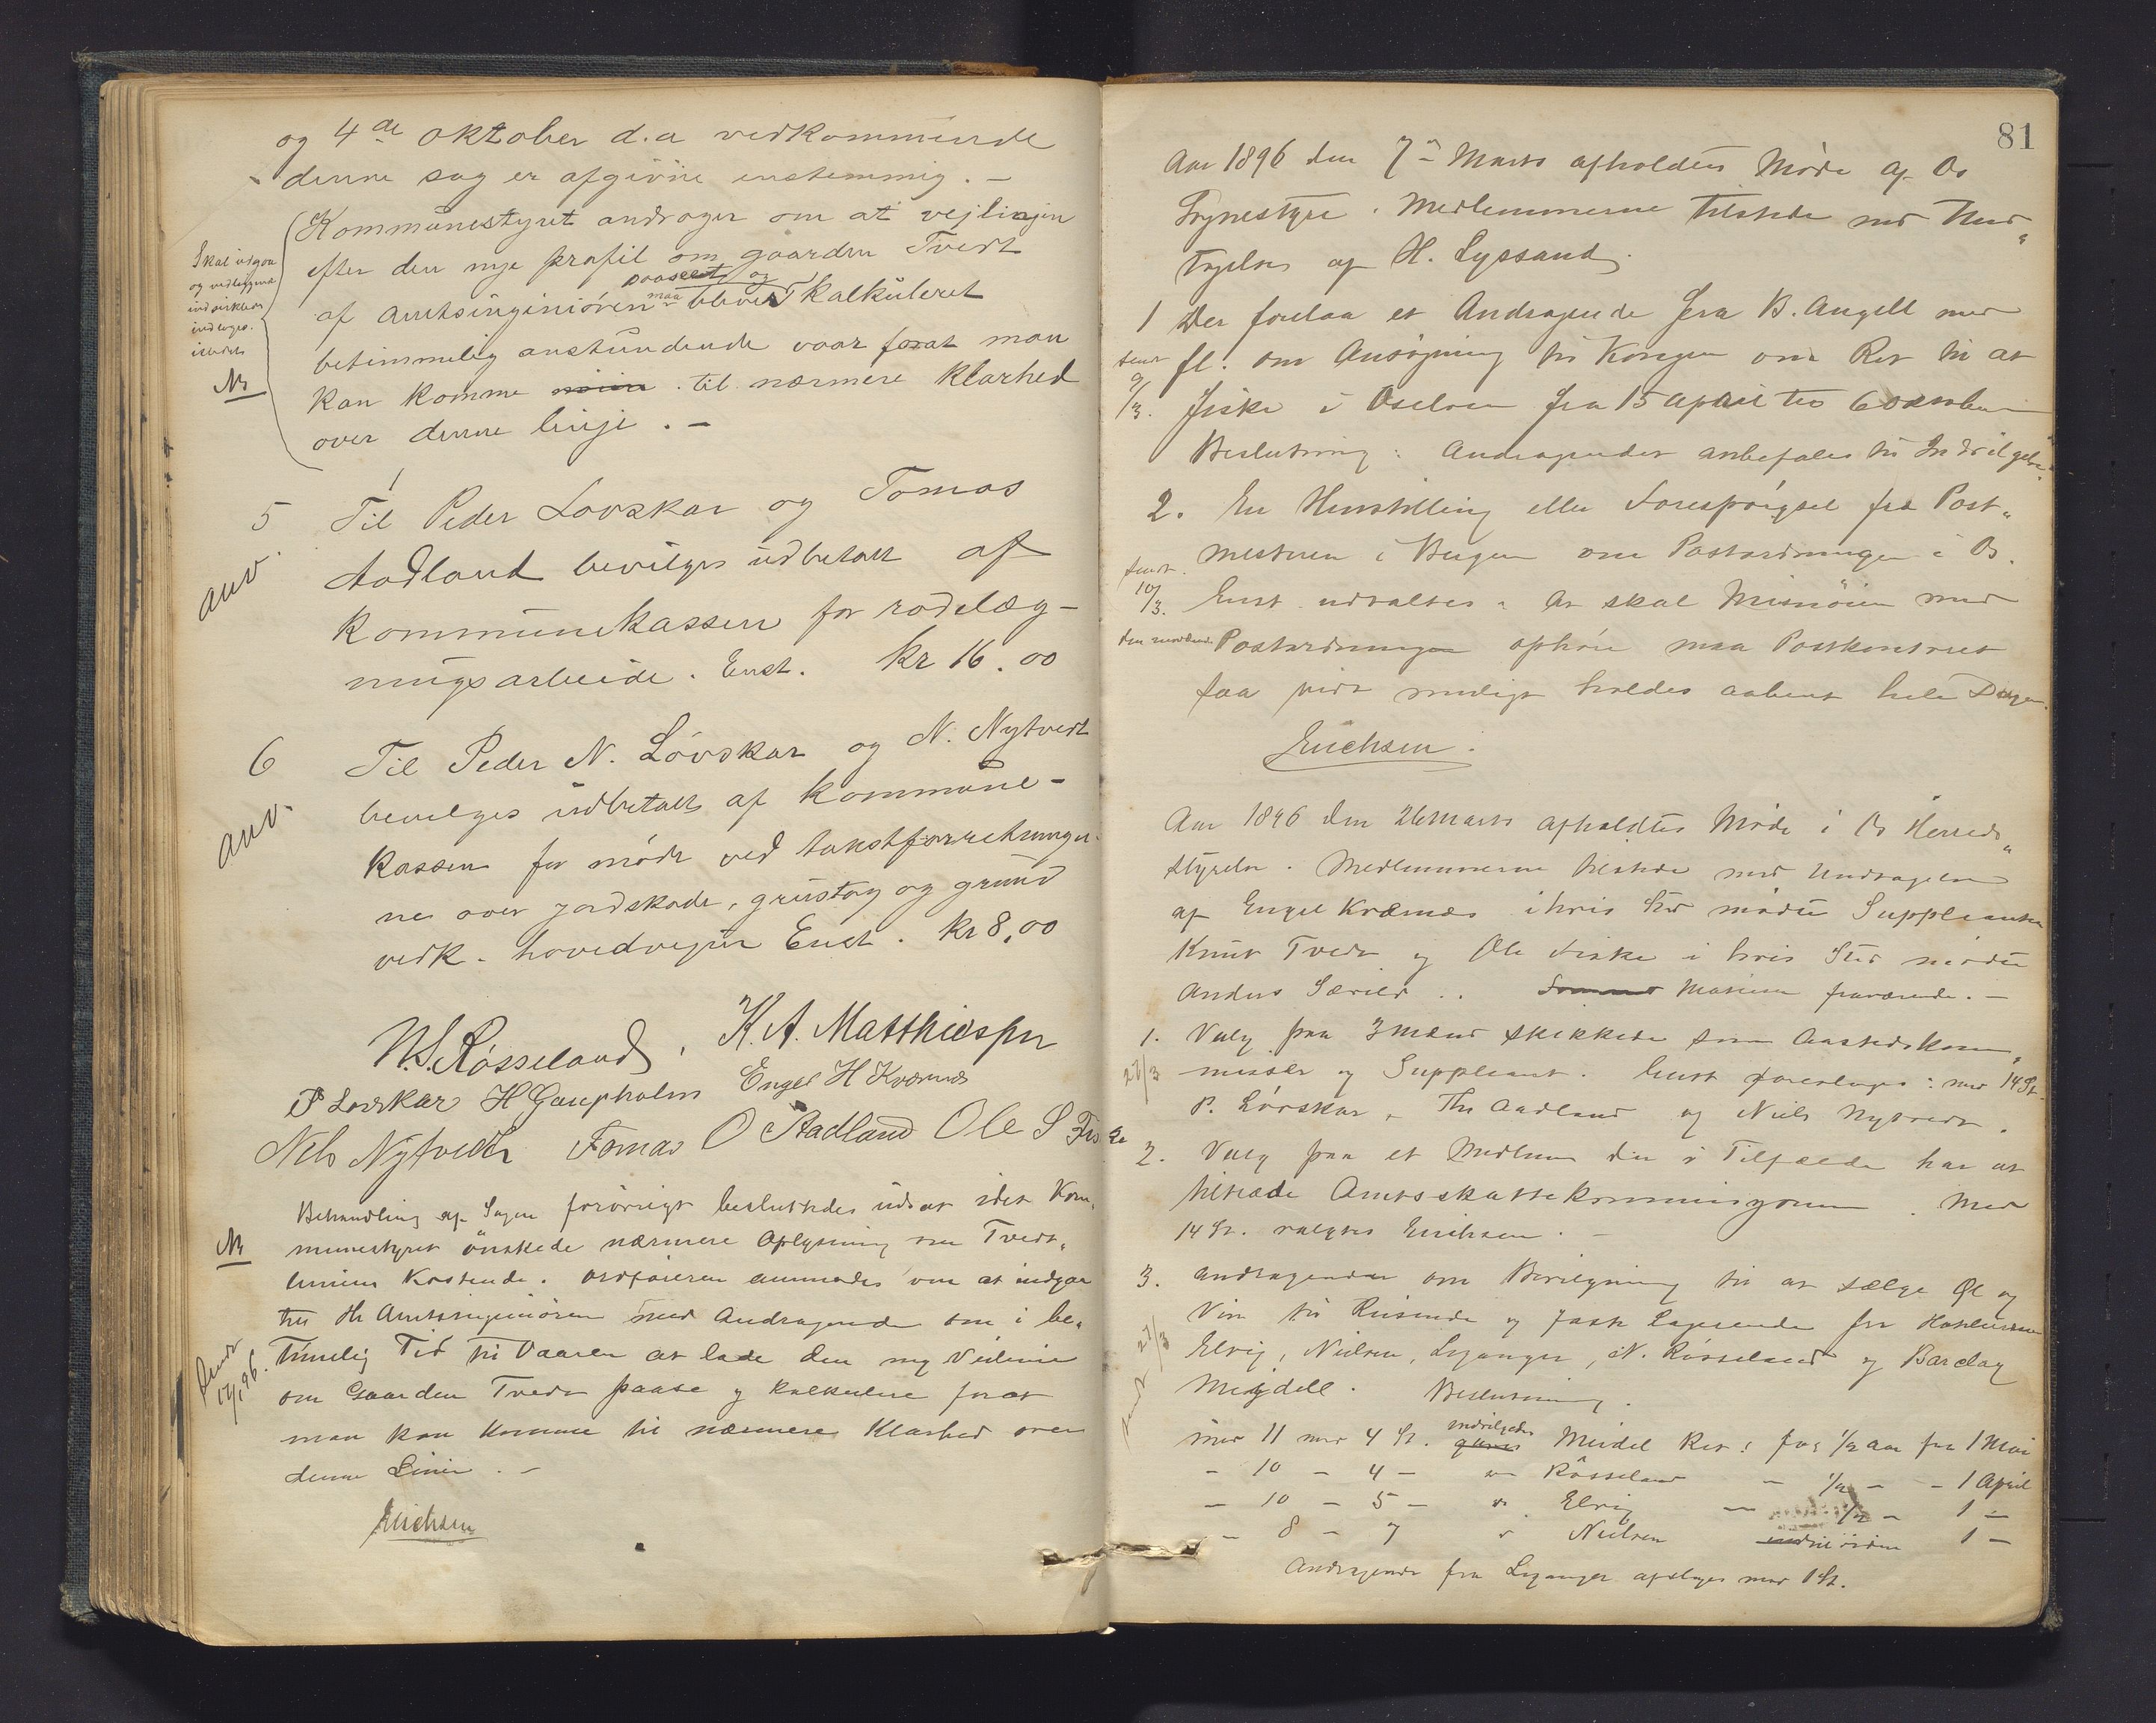 og 4de oktober d.a vedkommende
denne sag er afgivne enstemmig. –
Kommunestyret andrager om at vejlinjen
efter den nye profil om gaarden Tvedt
paaseet og
af amtsingeniören maa bliver kalkuleret
betimmelig anstundende vaar forat man
kan komme til nærmere klarhed
over denne linje. –
Skal udgaa
og vedliggende
indtages.
istedet
NB
5 Til Peder Lovskar og Tomas
Aadland bevilges udbetalt af
kommunekassen for rodelæg-
ningsarbeide. Enst. kr 16.00
anv.
6 Til Peder N. Lövskar og N. Nytvedt
bevilges udbetalt af kommune-
kassen for möde ved takstforretninger-
ne over jordskade, grustag og grund
vedk. hovedvejen Enst. kr 8,00
anv.
N.S. Røsseland, K.A. Matthiespn
P Lovskar H Gaupholm Engel H Kvernes
Nels Nytvedt Tomas O Aadland Ole S Fiske
Behandling af Sagen forövrigt besluttedes udsat idet Kom„
munestyret önskede nærmere Oplysning om Tvedt„
liniens Kostende. Ordföreren anmodes om at indgaa
til Hr Amtsingeniören med Andragende om i be„
timelig Tid til Vaaren at lade den ny Veilinie
om Gaarden Tvedt paase og kalkulere forat
man kan komme til nærmere Klarhed over
denne Linie. –
NB
Sendt
Erichsen
81
Aar 1896 den 7de Marts afholdtes Möde af Os
Sognestyre. Medlemmerne tilstede med Und„
tagelse af H. Lyssand.
1 Der forelaa et Andragende fra B. Angell med
fl. om Ansögning til Kongen om Ret til at
fiske i Oselven fra 15 April til
Beslutning: Andragendet anbefales til Indvilgelse.
sendt
9/3.
2. En Henstilling eller Forespörgsel fra Post„
mesteren i Bergen om Postordningen i Os.
Enst. udtaltes: At skal Misnöien med
den nuværende Postordningen ophöre maa Postkontoret
saa vidt muligt holdes aabent hele Dagen.
sendt
10/3.
Erichsen.
Aar 1896 den 26 Marts afholdtes Möde i Os Herreds„
styrelse. Medlemmerne tilstede med Undtagelse
af Engel Kvernes i hvis Sted mödte Suppleanten
Knut Tvedt og Ole Fiske i hvis Sted mödte
Anders Særvild.. fraværende. –
1. Valg paa 3 Mænd skikkede som Aastedskom„
missær og Suppleant. Enst foreslages: med 14 St.
P. Lövskar, Ths Aadland og Niels Nytvedt.
27/3
2. Valg paa et Medlem der i Tilfælde har at
tiltræde Amtsskattekommisjonen. Med
14 St. valgtes Erichsen. –
3. Andragender om Bevilgning til at sælge Øl og
Vin til Reisende og faste Logerende fra Hotelierne
Elvig, Nielsen, Leganger, N. Rösseland og Barclay
Meydell. Beslutning.
Sendt 27/3
med 11 mod 4 St. indvilgedes Meidel Ret: for 1/2 Aar fra 1 Mai
– 10 – 4 – Rösseland – 1/2 – – 1 April
– 10 – 5 – Elvig – 1/2 – 1 –
– 8 – 7 Nielsen 1 –
Andragende fra Leganger afslages med 1 St.